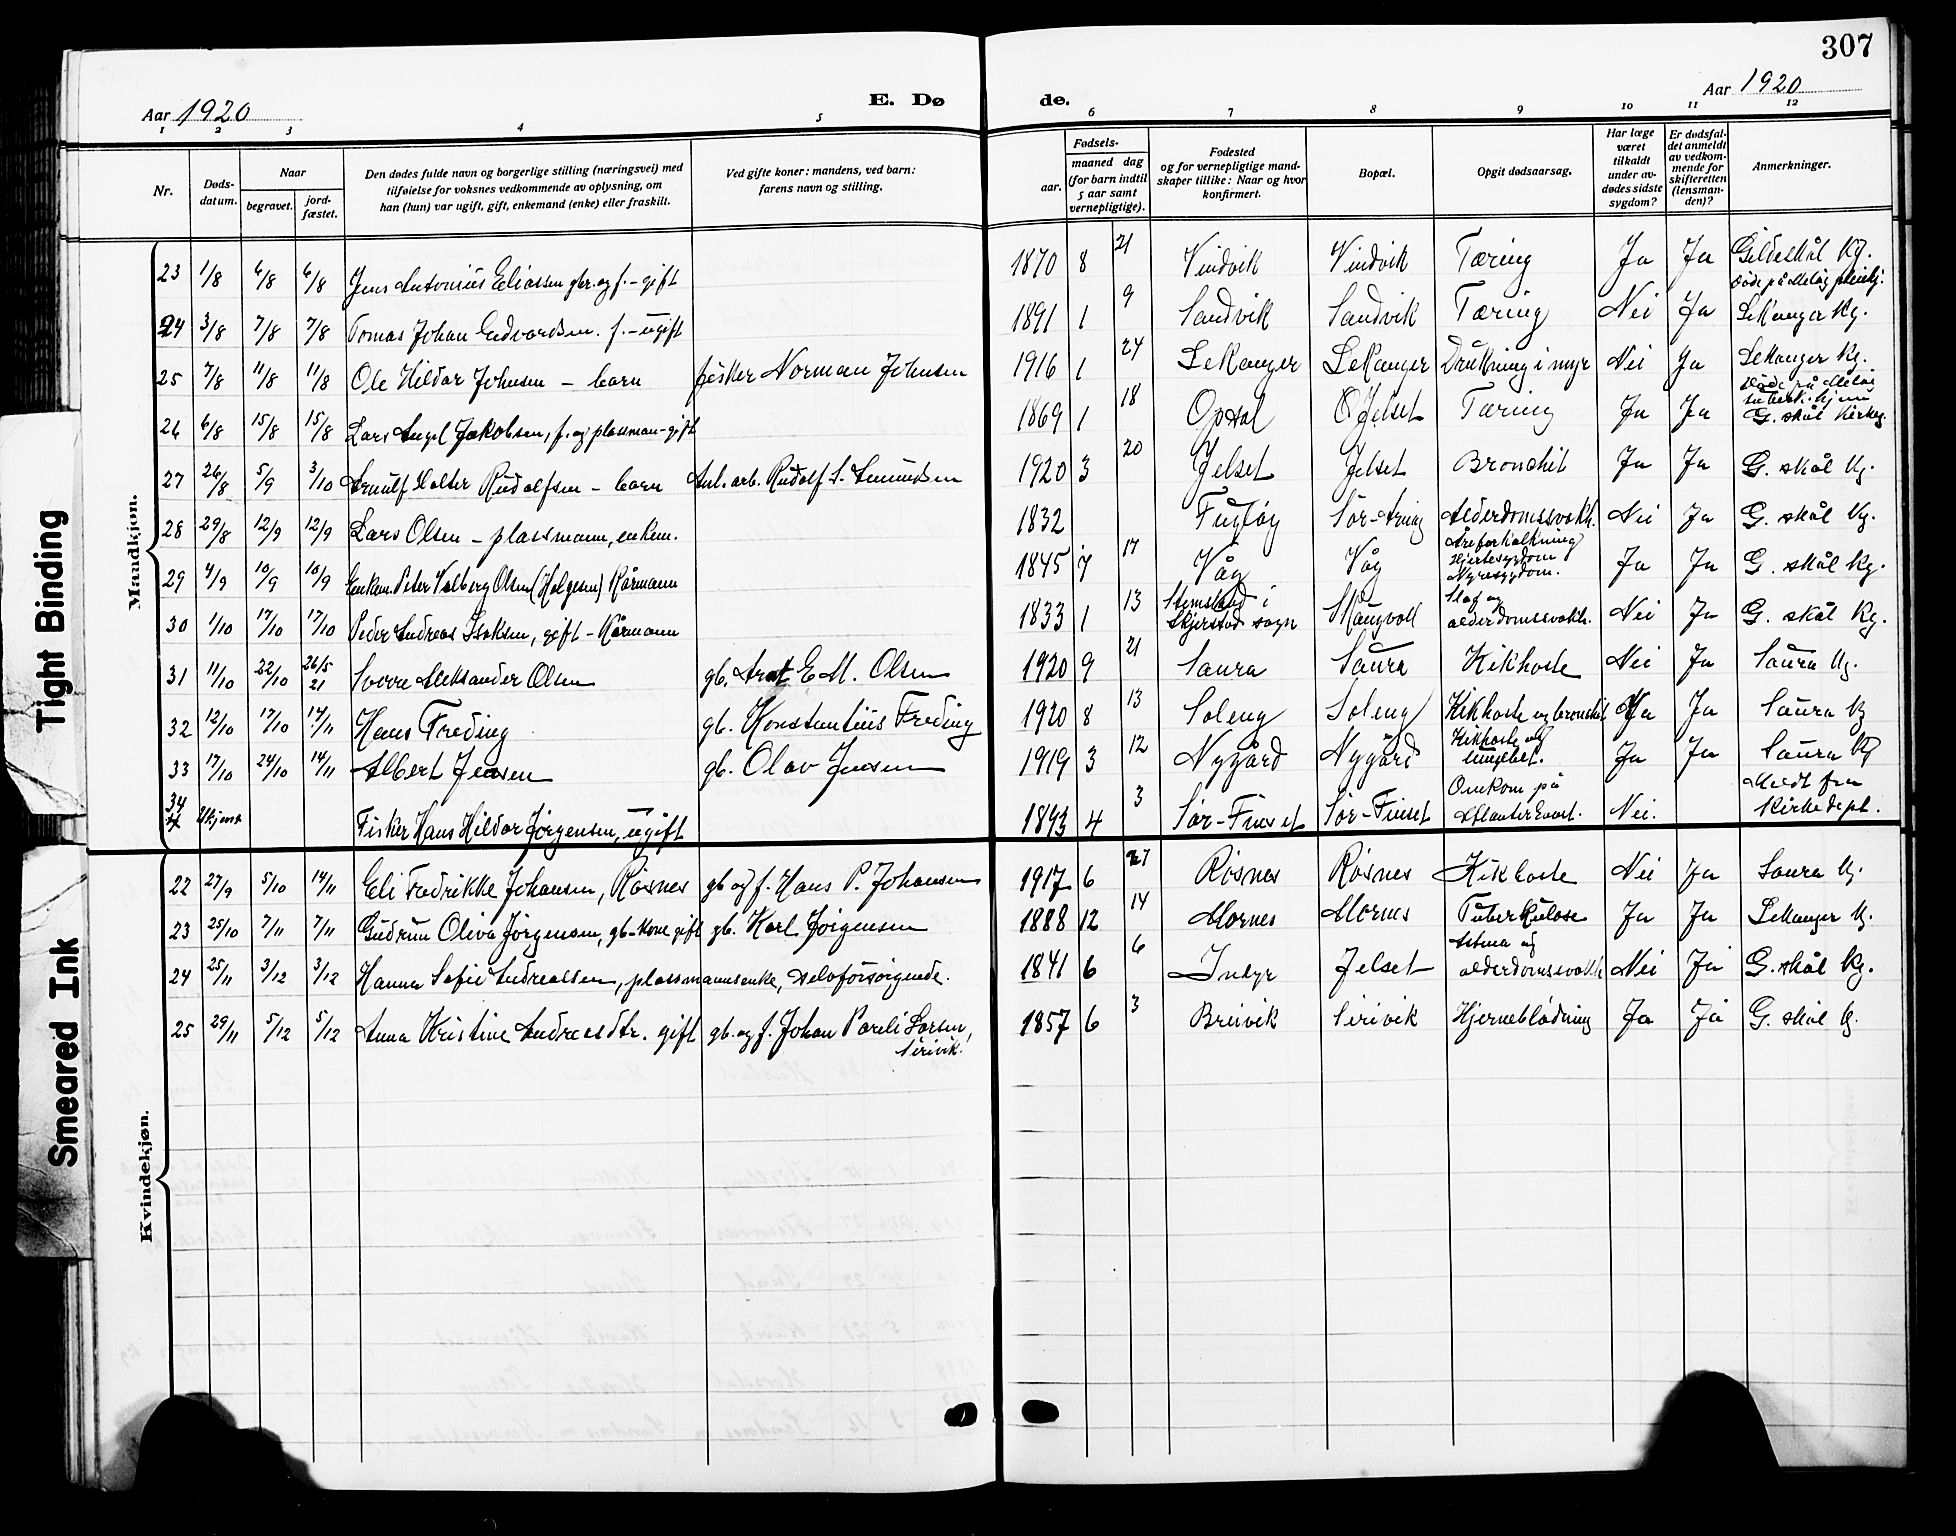 307
Aar 1920
E. Dø
de.
Aar 1920
1 2 3 4 5 6 7 8 9 10 11 12
Nr.
Døds-
datum.
Naar
begravet.
jord-
fæstet.
Den dødes fulde navn og borgerlige stilling (næringsvei) med
tilføielse for voksnes vedkommende av oplysning, om
han (hun) var ugift, gift, enkemand (enke) eller fraskilt.
Ved gifte koner: mandens, ved barn:
farens navn og stilling.
Fødsels-
aar.
maaned dag
(for barn indtil
5 aar samt
vernepligtige).
Fødested
og for vernepligtige mand-
skaper tillike: Naar og hvor
konfirmert.
Bopæl.
Opgit dødsaarsag.
Har læge
været
tilkaldt
under av-
dødes sidste
sygdom?
Er dødsfal-
det anmeldt
av vedkom-
mende for
skifteretten
(lensman-
den)?
Anmerkninger.
Mandkjøn.
23 1/8 6/8 6/8 Jens Antonius Eliassen gbr. og f. - gift 1870 8 21 Vindvik Vindvik Tæring Ja Ja Gildeskål kg.
Døde på Meløy pleiehj.
24 3/8 7/8 7/8 Tomas Johan Edvardsen. f. - ugift 1891 1 9 Sandvik Sandvik Tæring Nei Ja Lekanger kg.
25 7/8 11/8 11/8 Ole Hildor Johnsen - barn fisker Norman Johnsen 1916 1 24 Lekanger Lekanger Drukning i myr Nei Ja Lekanger kg.
Døde på Meløy
tuberk. hjem
26 6/8 15/8 15/8 Lars Angel Jakobsen, f. og plassman - gift 1869 1 18 Opsal Jelset Tæring Ja Ja G. skål kirkeg.
27 26/8 5/9 3/10 Arnulf Holter Rudolfsen - barn Anl. arb. Rudolf S. 1920 3 20 Jelset Jelset Bronchit Ja Ja G. skål kg.
28 29/8 12/9 12/9 Lars Olsen - plassmann, enkem. 1832 Fugløy Sør-Arnøy Alderdomssvakh. Nei Ja G. skål kg.
29 4/9 10/9 10/9 Enkem. Peter Valberg Olsen (Helgesen) Kårmann 1845 7 17 Våg Våg Åreforkalkning
Hjertesygdom
Nyresygdom. Ja Ja G. skål kg.
30 1/10 17/10 17/10 Peder Andreas Isaksen, gift - Kårmann 1833 1 13 Stemsland i
Skjerstad sogn Skaugvoll Slag og
alderdomssvakh. Nei Ja G. skål kg.
31 11/10 22/10 26/5
21 Sverre Aleksander Olsen gb. Arnt E. M. Olsen 1920 9 21 Saura Saura Kikhoste Nei Ja Saura kg.
32 12/10 17/10 14/11 Hans Freding gb. Konstantius Freding 1920 8 13 Soleng Soleng Kikhoste og bronchit Ja Ja Saura kg
33 17/10 24/10 14/11 Albert Jensen gb. Olav Jensen 1919 3 12 Nygård Nygård Kikhoste og
lungebet. Ja Ja Saura kg
34 Ukjent Fisker Hans Hildor Jørgensen, ugift 1893 4 3 Sør-Finset Sør-Finset Omkom på
Atlanterhavet. Nei. Meldt fra
Kirkedept.
Kvindekjøn.
22 27/9 5/10 14/11 Eli Fredrikke Johansen, Røsnes gb og f. Hans P. Johansen 1917 6 27 Røsnes Røsnes Kikhoste Nei Ja Saura kg.
23 25/10 7/11 7/11 Gudrun Oliva Jørgensen, gb-kone gift gb. Karl Jørgensen 1888 12 14 Mornes Mornes Tuberkulose Ja Ja Lekanger kg.
24 25/11 3/12 3/12 Hanna Sofie Andreassen, plassmannsenke, selvforsørgende. 1841 6 6 Indyr Jelset Astma og
alderdomssvakh Nei Ja G. skål kg.
25 29/11 5/12 5/12 Anna Kristine Andreasdtr. gift gb. og f. Johan Pareli Larsen,
Sirivik. 1857 6 3 Breivik Sirivik Hjerneblødning Ja Ja G. skål kg.
Tight Binding
Smeared Ink